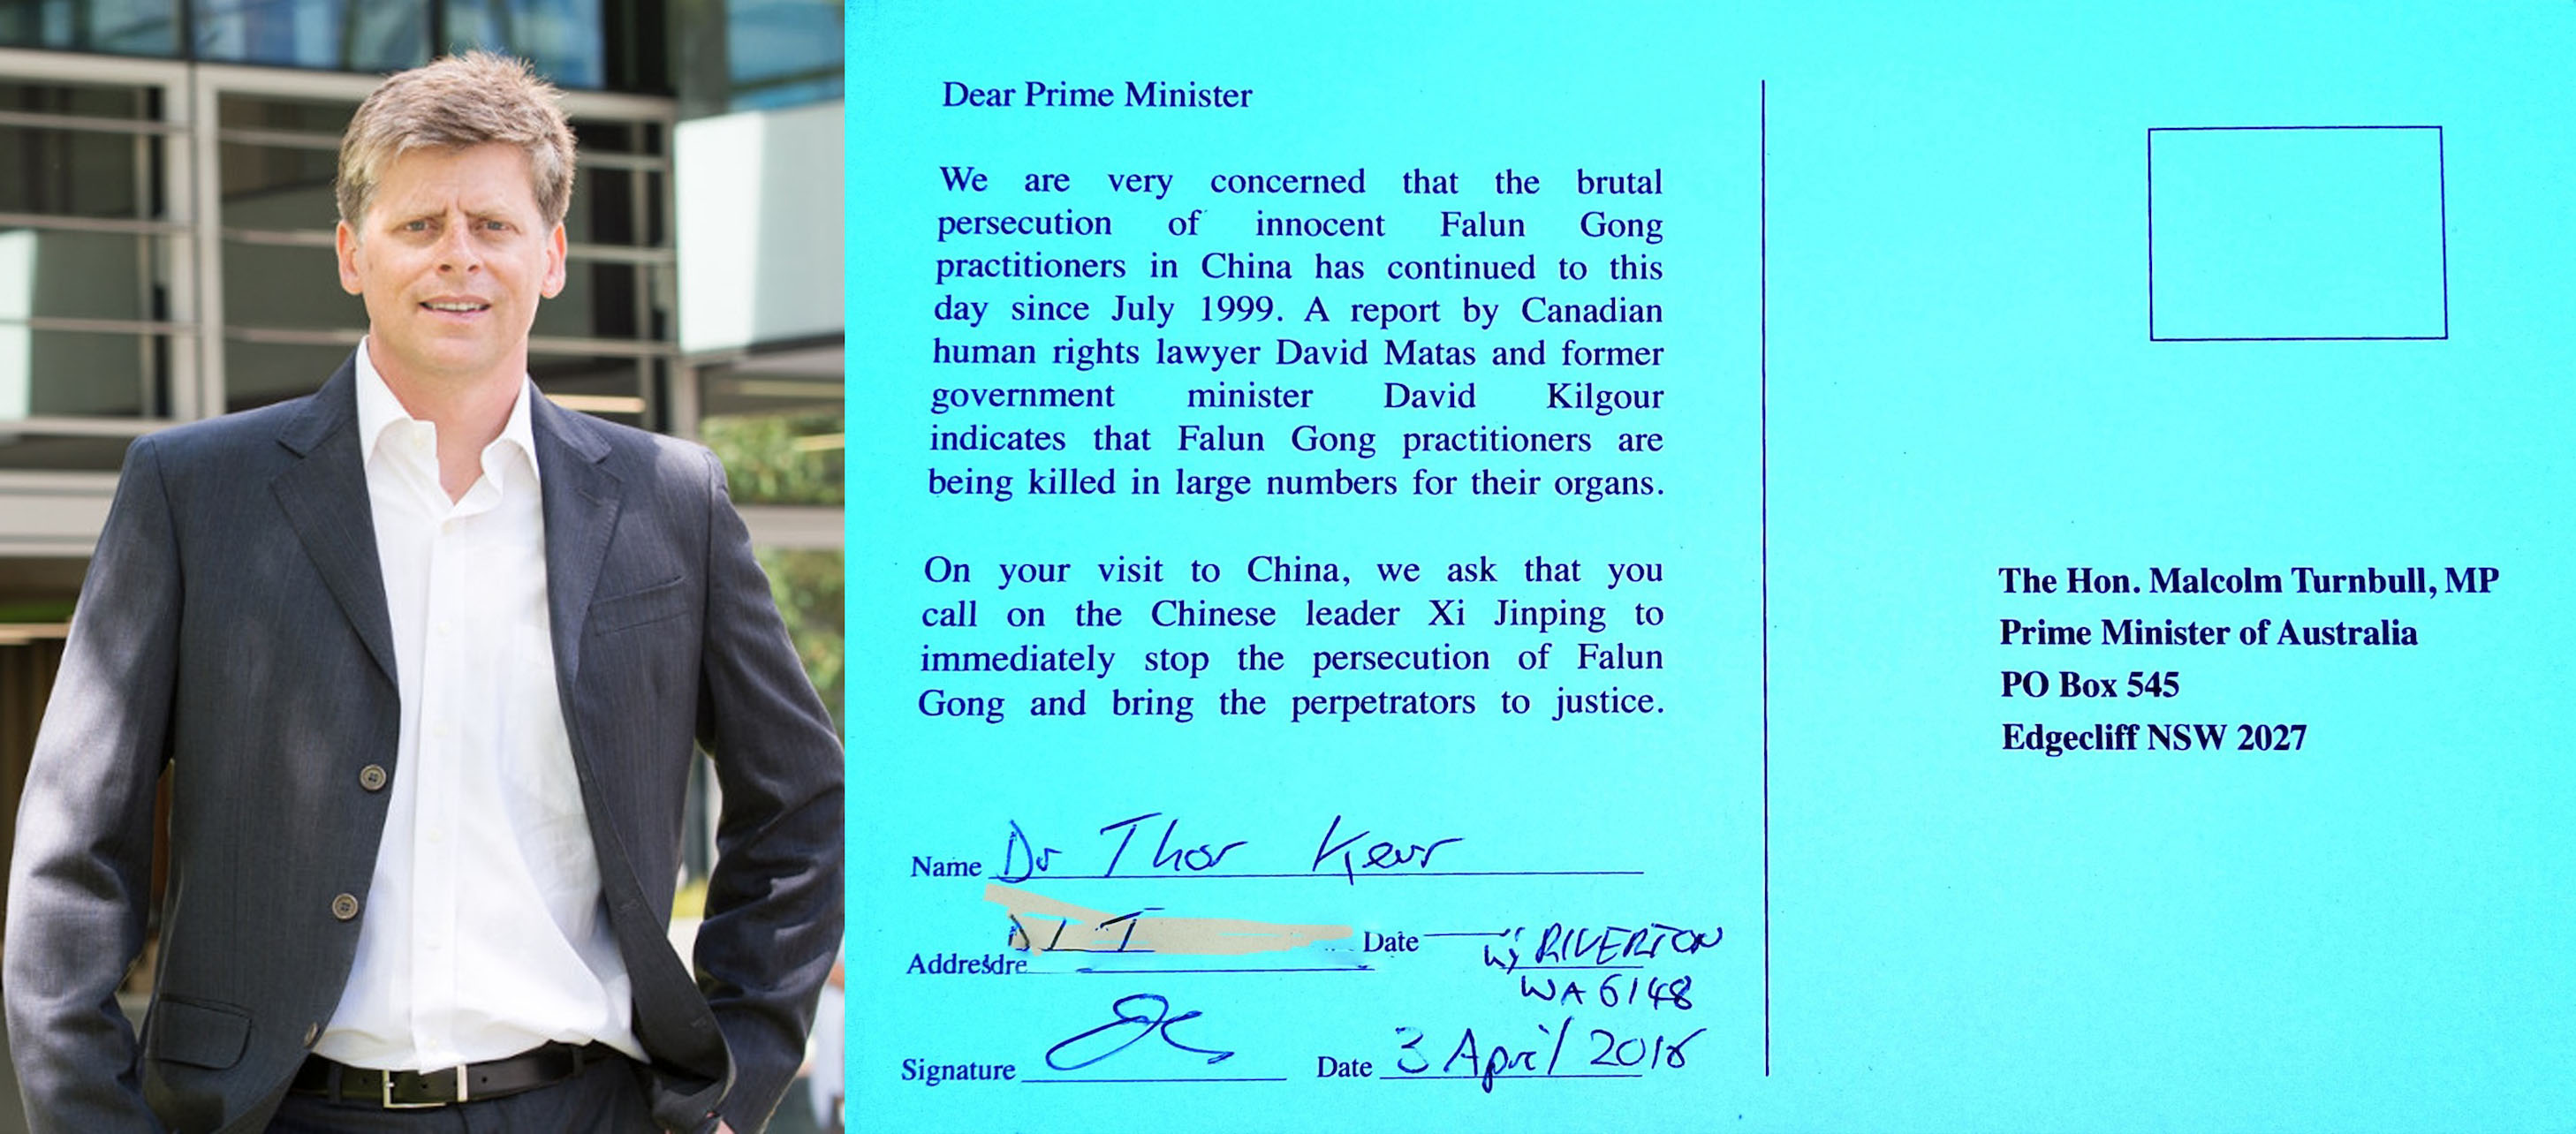 Dear Prime Minister
We are very concerned that the brutal
persecution of innocent Falun Gong
practitioners in China has continued to this
day since July 1999. A report by Canadian
human rights lawyer David Matas and former
government minister David Kilgour
indicates that Falun Gong practitioners are
being killed in large numbers for their organs.
On your visit to China, we ask that you
call on the Chinese leader Xi Jinping to
immediately stop the persecution of Falun
Gong and bring the perpetrators to justice.
Name Dr Thor Kerr
Date
RIVERTON
WA 6148
Signature
Date 3 April 2016
The Hon. Malcolm Turnbull, MP
Prime Minister of Australia
PO Box 545
Edgecliff NSW 2027